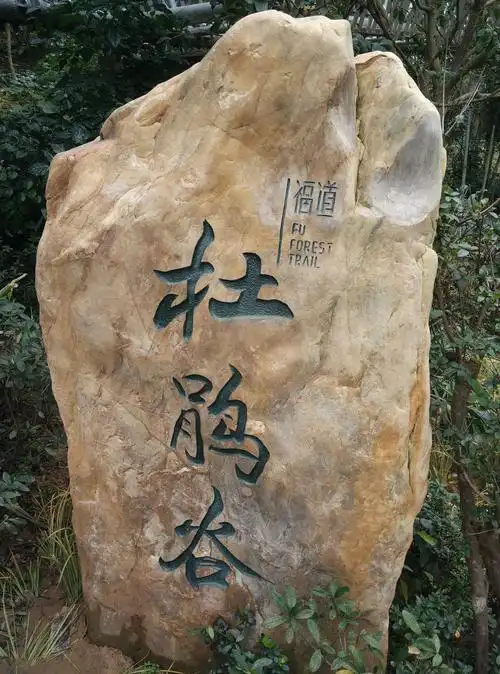 福道
FU
FOREST
TRAIL
杜鹃谷